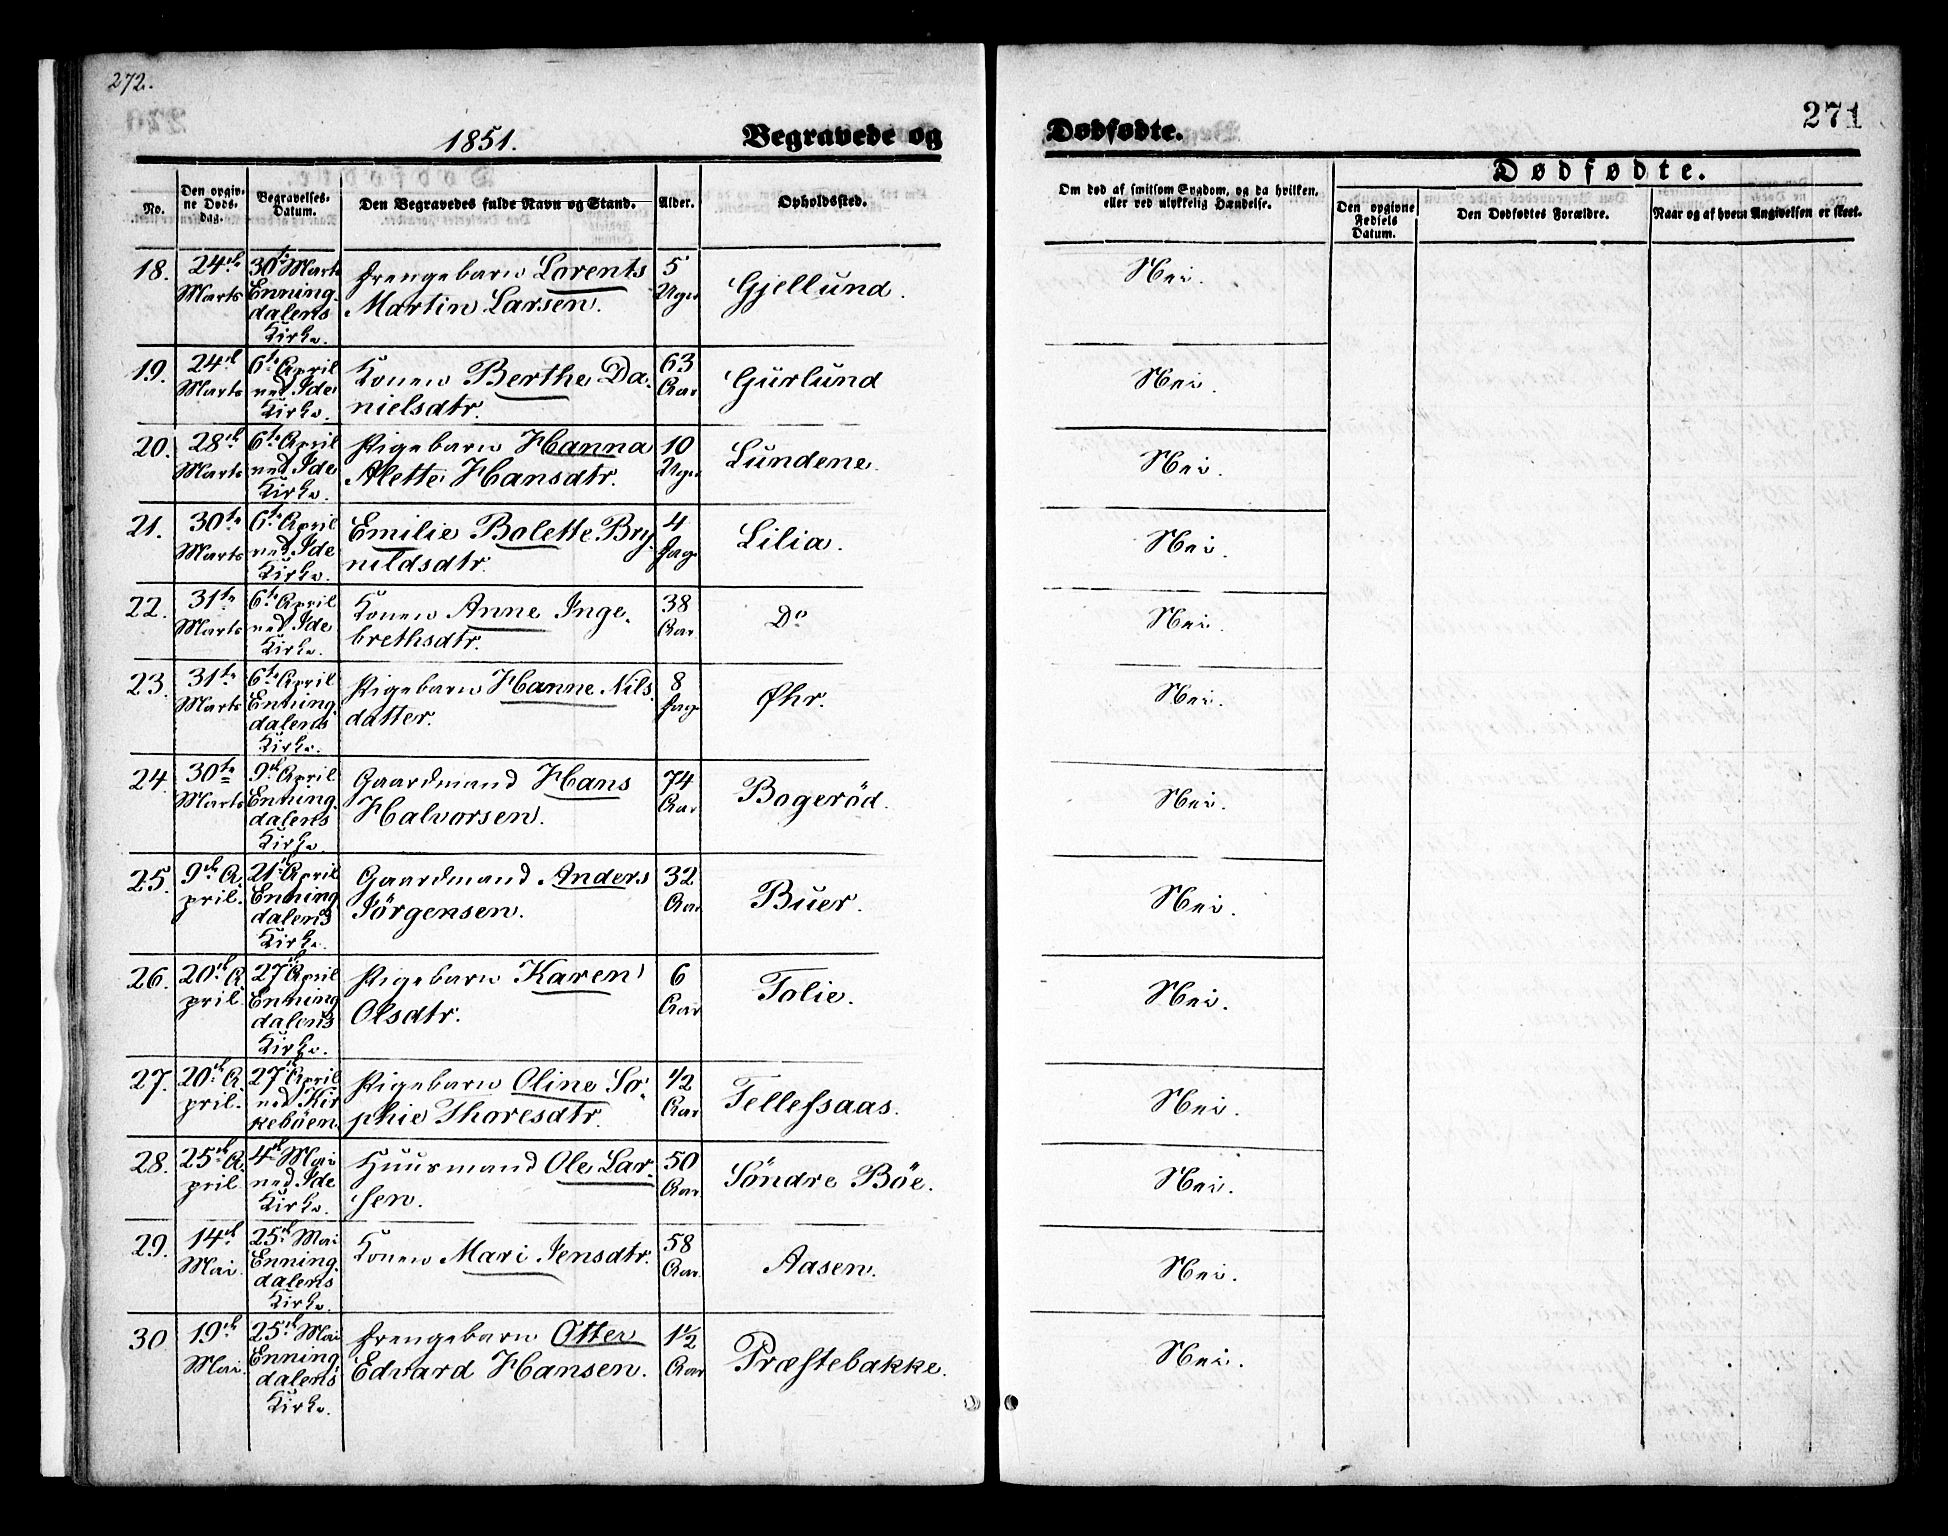 272.
1851.
Begravede og
No.
Den opgiv-
ne Døds-
dag.
Begravelses-
Datum.
Den Begravedes fulde Navn og Stand.
Alder.
Opholdssted.
18.
24de
Marts
30te Marts
Enning-
dalens
Kirke.
Drengebarn Lorents
Martin Larsen.
5
Uger
Gjellund.
19.
24de
Marts
6te April
ved Ide
Kirke.
Konen Berthe Da-
nielsdtr.
63
Aar
Gürlund
20.
28de
Marts
6te April
ved Ide
Kirke.
Pigebarn Hanna
Alette Hansdtr.
10
Uger
Lundene.
21.
30te
Marts
6te April
ved Ide
Kirke.
Emilie Bolette Bry-
nildsdtr.
4
Dage
Lilia.
22.
31te
Marts
6te April
ved Ide
Kirke.
Konen Anne Inge-
brethsdtr.
38
Aar
Do
23.
31te
Marts
6te April
Enning-
dalens
Kirke.
Pigebarn Hanne Nils-
datter.
8
Dage
Øhr.
24.
30te
Marts
9de April
Enning-
dalens
Kirke.
Gaardmand Hans
Halvorsen.
74
Aar
Bogeröd.
25.
9de A-
pril.
21de April
Enning-
dalens
Kirke.
Gaardmand Anders
Jörgensen.
32
Aar
Buer.
26.
20de A-
pril.
27de April
Enning-
dalens
Kirke.
Pigebarn Karen
Olsdtr.
6
Aar
Tolie.
27.
20de A-
pril.
27de April
ved Kir-
keböen
Pigebarn Oline So-
phie Thoresdtr.
1/2
Aar
Tellefsaas.
28.
25de A-
pril
4de Mai
ved Ide
Kirke.
Huusmand Ole Lar-
sen.
50
Aar
Söndre Böe.
29.
14de
Mai.
25de Mai
Enning-
dalens
Kirke.
Konen Mari Jensdtr.
58
Aar.
Aasen.
30
19de
Mai.
25de Mai
Enning-
dalens
Kirke.
Drengebarn Otter
Edvard Hansen.
1 1/2
Aar
Præstebakke.
271
Dødfødte.
Om død af smitsom Sygdom, og da hvilken,
eller ved ulykkelig Hændelse.
Dødfødte.
Den opgivne
Fødsels
Datum.
Den Dødfødtes Forældre.
Naar og af hvem Angivelsen er skeet.
Nei.
Nei.
Nei.
Nei.
Nei.
Nei.
Nei.
Nei.
Nei.
Nei.
Nei.
Nei.
Nei.